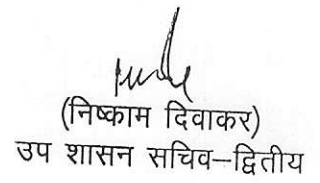 (निष्काम दिवाकर)
उप शासन सचिव–द्वितीय